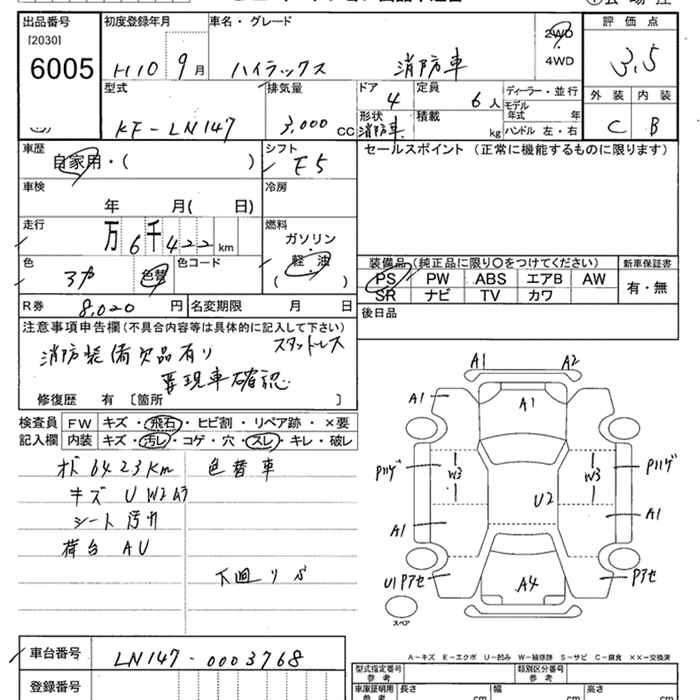 出品番号 初度登録年月 車名・グレード 評価点
[2030] 6005
H10 9月 ハイラックス 消防車 2WD・4WD 3.5
型式 排気量 ドア 定員 ディーラー・並行 外装 内装
4 6人 モデル年式 年
KF-LN147 3,000 CC 形状 消防車 積載 kg ハンドル 左・右 C B
車歴 シフト セールスポイント (正常に機能するものに限ります)
自家用・( ) F5
車検 冷房
年 月( 日)
走行 燃料
万6千422km ガソリン・軽油
色 色コード 装備品(純正品に限り〇をつけてください) 新車保証書
色替 ( ) PS PW ABS エアB AW 有・無
SR ナビ TV カワ
R券 8,020円 名変期限 月 日 後日品
注意事項申告欄(不具合内容等は具体的に記入して下さい)
スタットレス
消防装備欠品有り
要現車確認
修復歴 有 〔箇所 〕
検査員 FW キズ・飛石・ヒビ割・リペア跡・×要
記入欄 内装 キズ・汚レ・コゲ・穴・スレ・キレ・破レ
6423km 色替車
キズ U W2
シート汚れ
荷台 AU
下廻り
A1 A2
A1 A1
W3 W3
U2
A1 A1
A4
スペア
A-キズ E-エクボ U-凹み W-補修跡 S-サビ C-腐食 ××-交換済
車台番号 LN147-0003768 型式指定番号 参考 類別区分番号 参考
登録番号 車庫証明用 参考 長さ cm 幅 cm 高さ cm